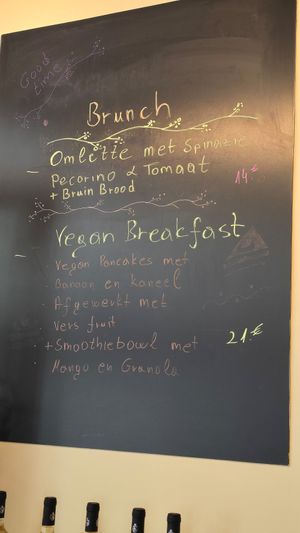 Good
time
Brunch
Omlette met Spinazie
- Pecorino & Tomaat
+ Bruin Brood
14.€
- Vegan Breakfast
· Vegan Pancakes met
· Banaan en kaneel
· Afgewerkt met
· Vers fruit
· + Smoothiebowl met
21.€
· Mango en Granola